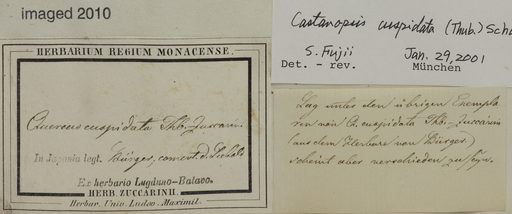 imaged 2010
HERBARIUM REGIUM MONACENSE.
Quercus cuspidata Thb. Zuccarini
In Japonia legt. Bürger, comm. d. Siebold
Ex herbario Lugduno-Batavo.
HERB. ZUCCARINII.
Herbar. Univ. Ludov. Maximil.
Castanopsis cuspidata (Thub.) Scho
S. Fujii Jan. 29, 2001
Det. - rev. München
Lag unter den übrigen Exempla
ren von Q. cuspidata Thb. Zuccarini
(aus dem Herbare von Bürger)
scheint aber verschieden zu seyn.